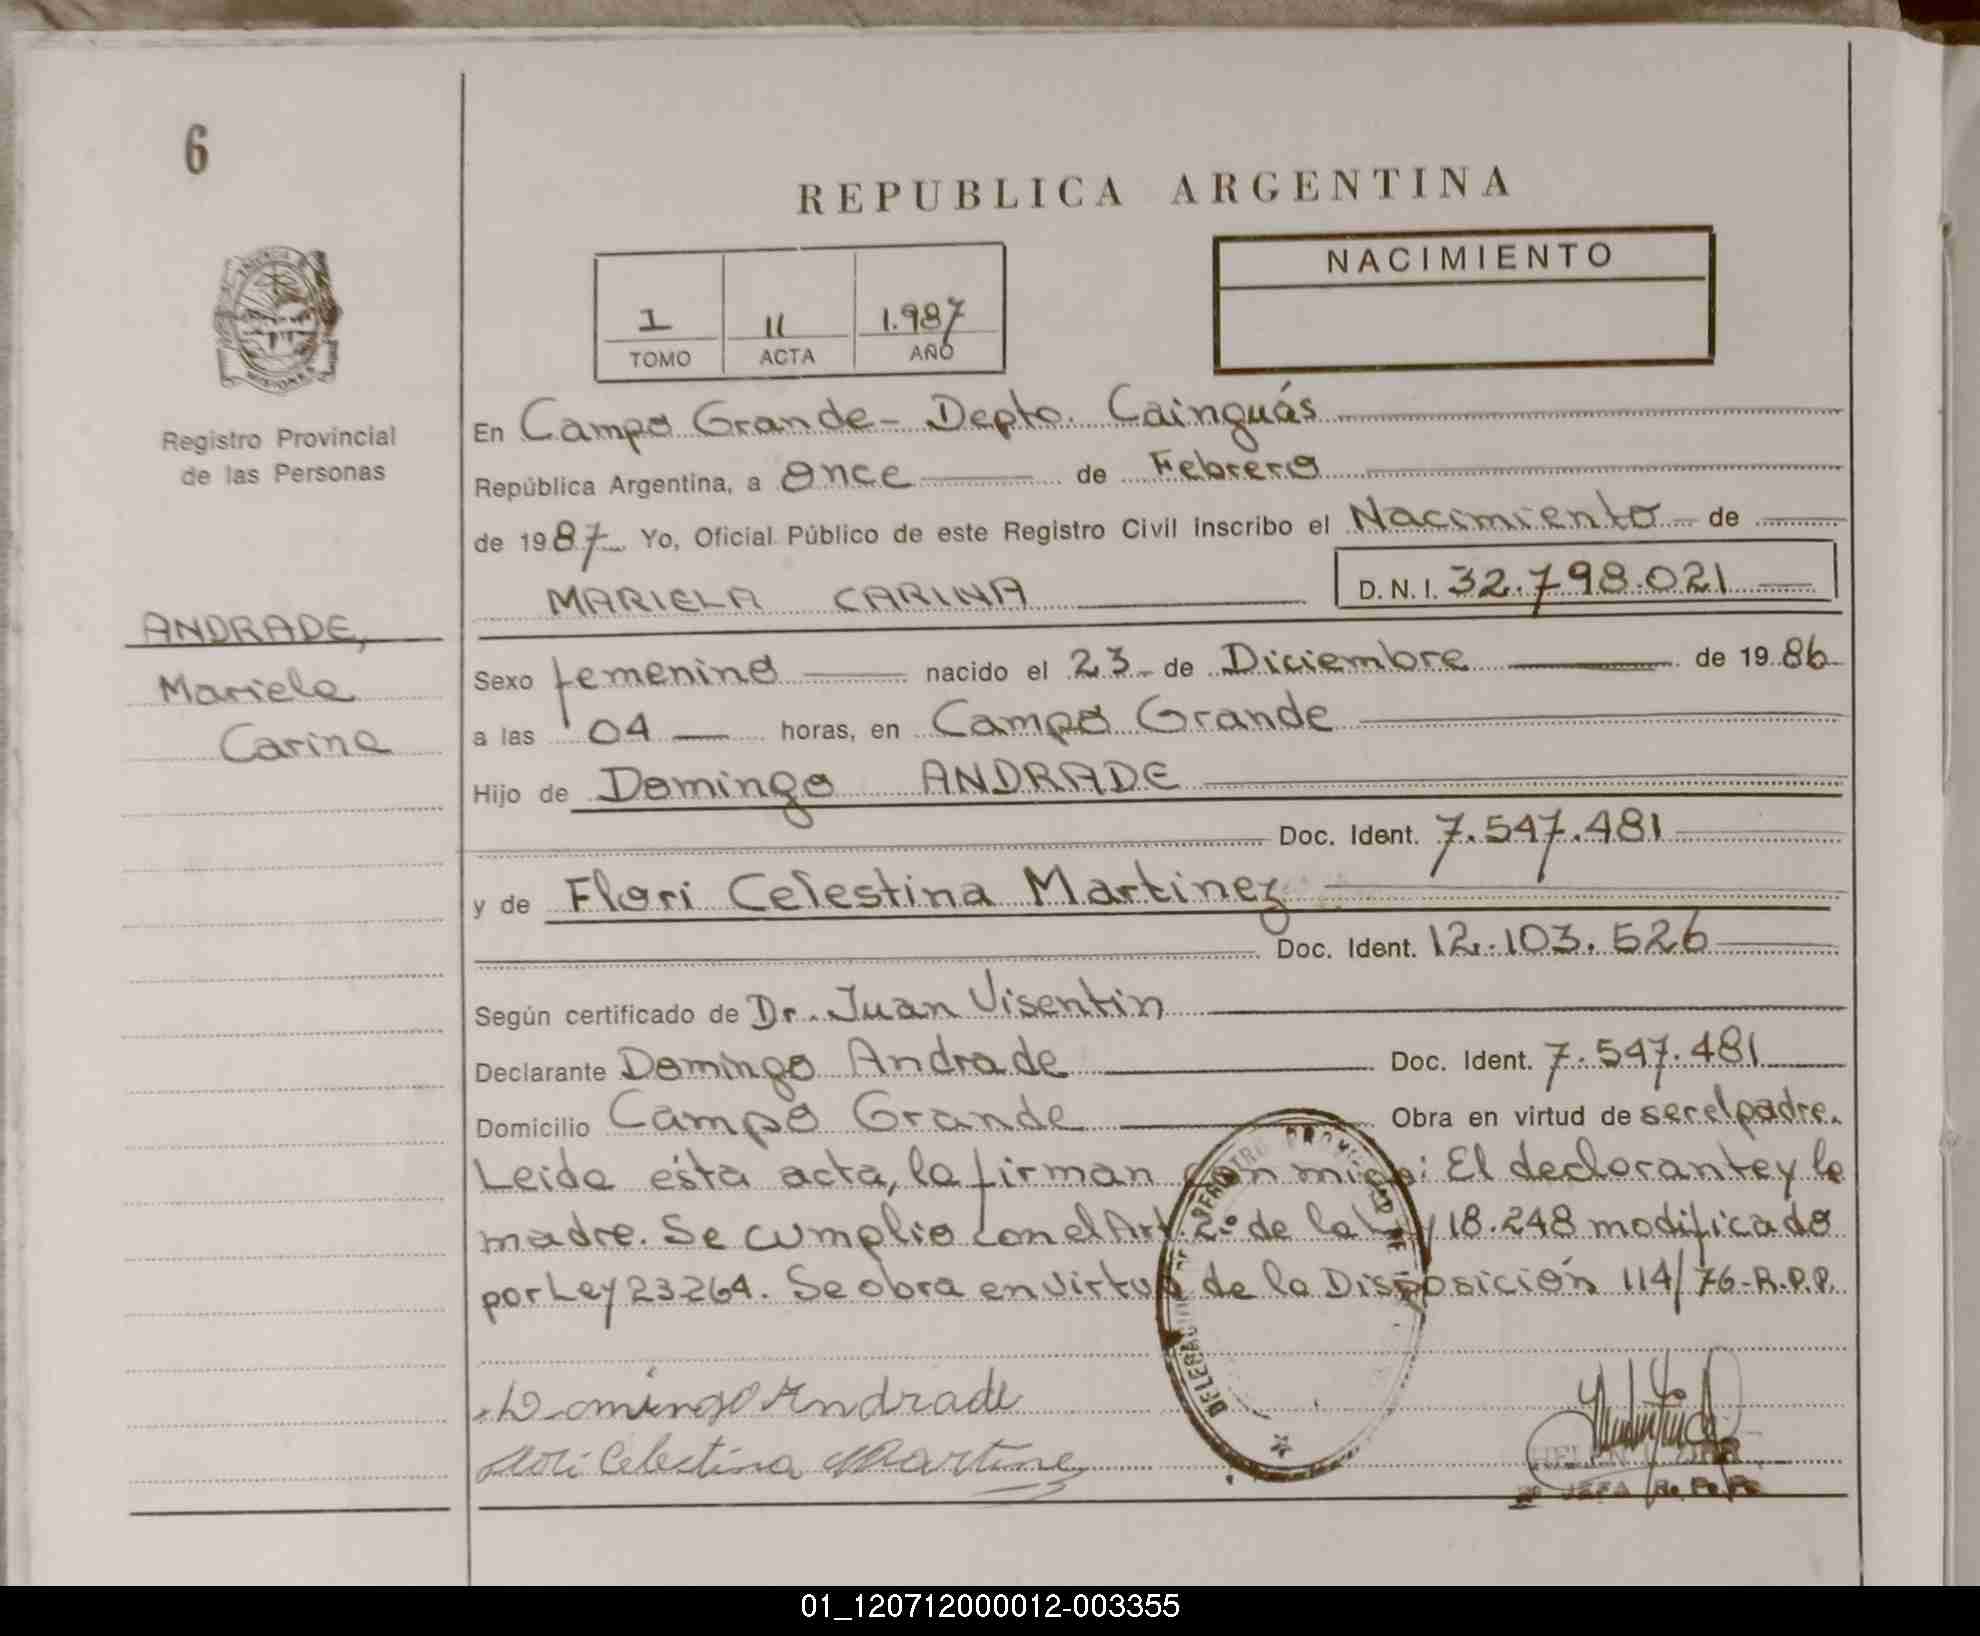 6
REPUBLICA ARGENTINA
NACIMIENTO
1 11 1.987
TOMO ACTA AÑO
Registro Provincial
de las Personas
En Campo Grande - Depto. Cainguás
República Argentina, a once de Febrero
de 1987 Yo, Oficial Público de este Registro Civil inscribo el Nacimiento de
MARIELA CARINA D.N.I. 32.798.021
ANDRADE,
Mariela
Carina
Sexo femenino nacido el 23 de Diciembre de 1986
a las 04 horas, en Campo Grande
Hijo de Domingo ANDRADE
Doc. Ident. 7.547.481
y de Flori Celestina Martinez
Doc. Ident. 12.103.526
Según certificado de Dr. Juan Visentin
Declarante Domingo Andrade Doc. Ident. 7.547.481
Domicilio Campo Grande Obra en virtud de ser el padre.
Leida esta acta, la firman con migo: El declarante y la
madre. Se cumplio con el Art. 2º de la Ley 18.248 modificado
por Ley 23264. Se obra en virtud de la Disposición 114/76-R.P.P.
Domingo Andrade
Flori Celestina Martinez
JEFA R.P.P.
01_120712000012-003355